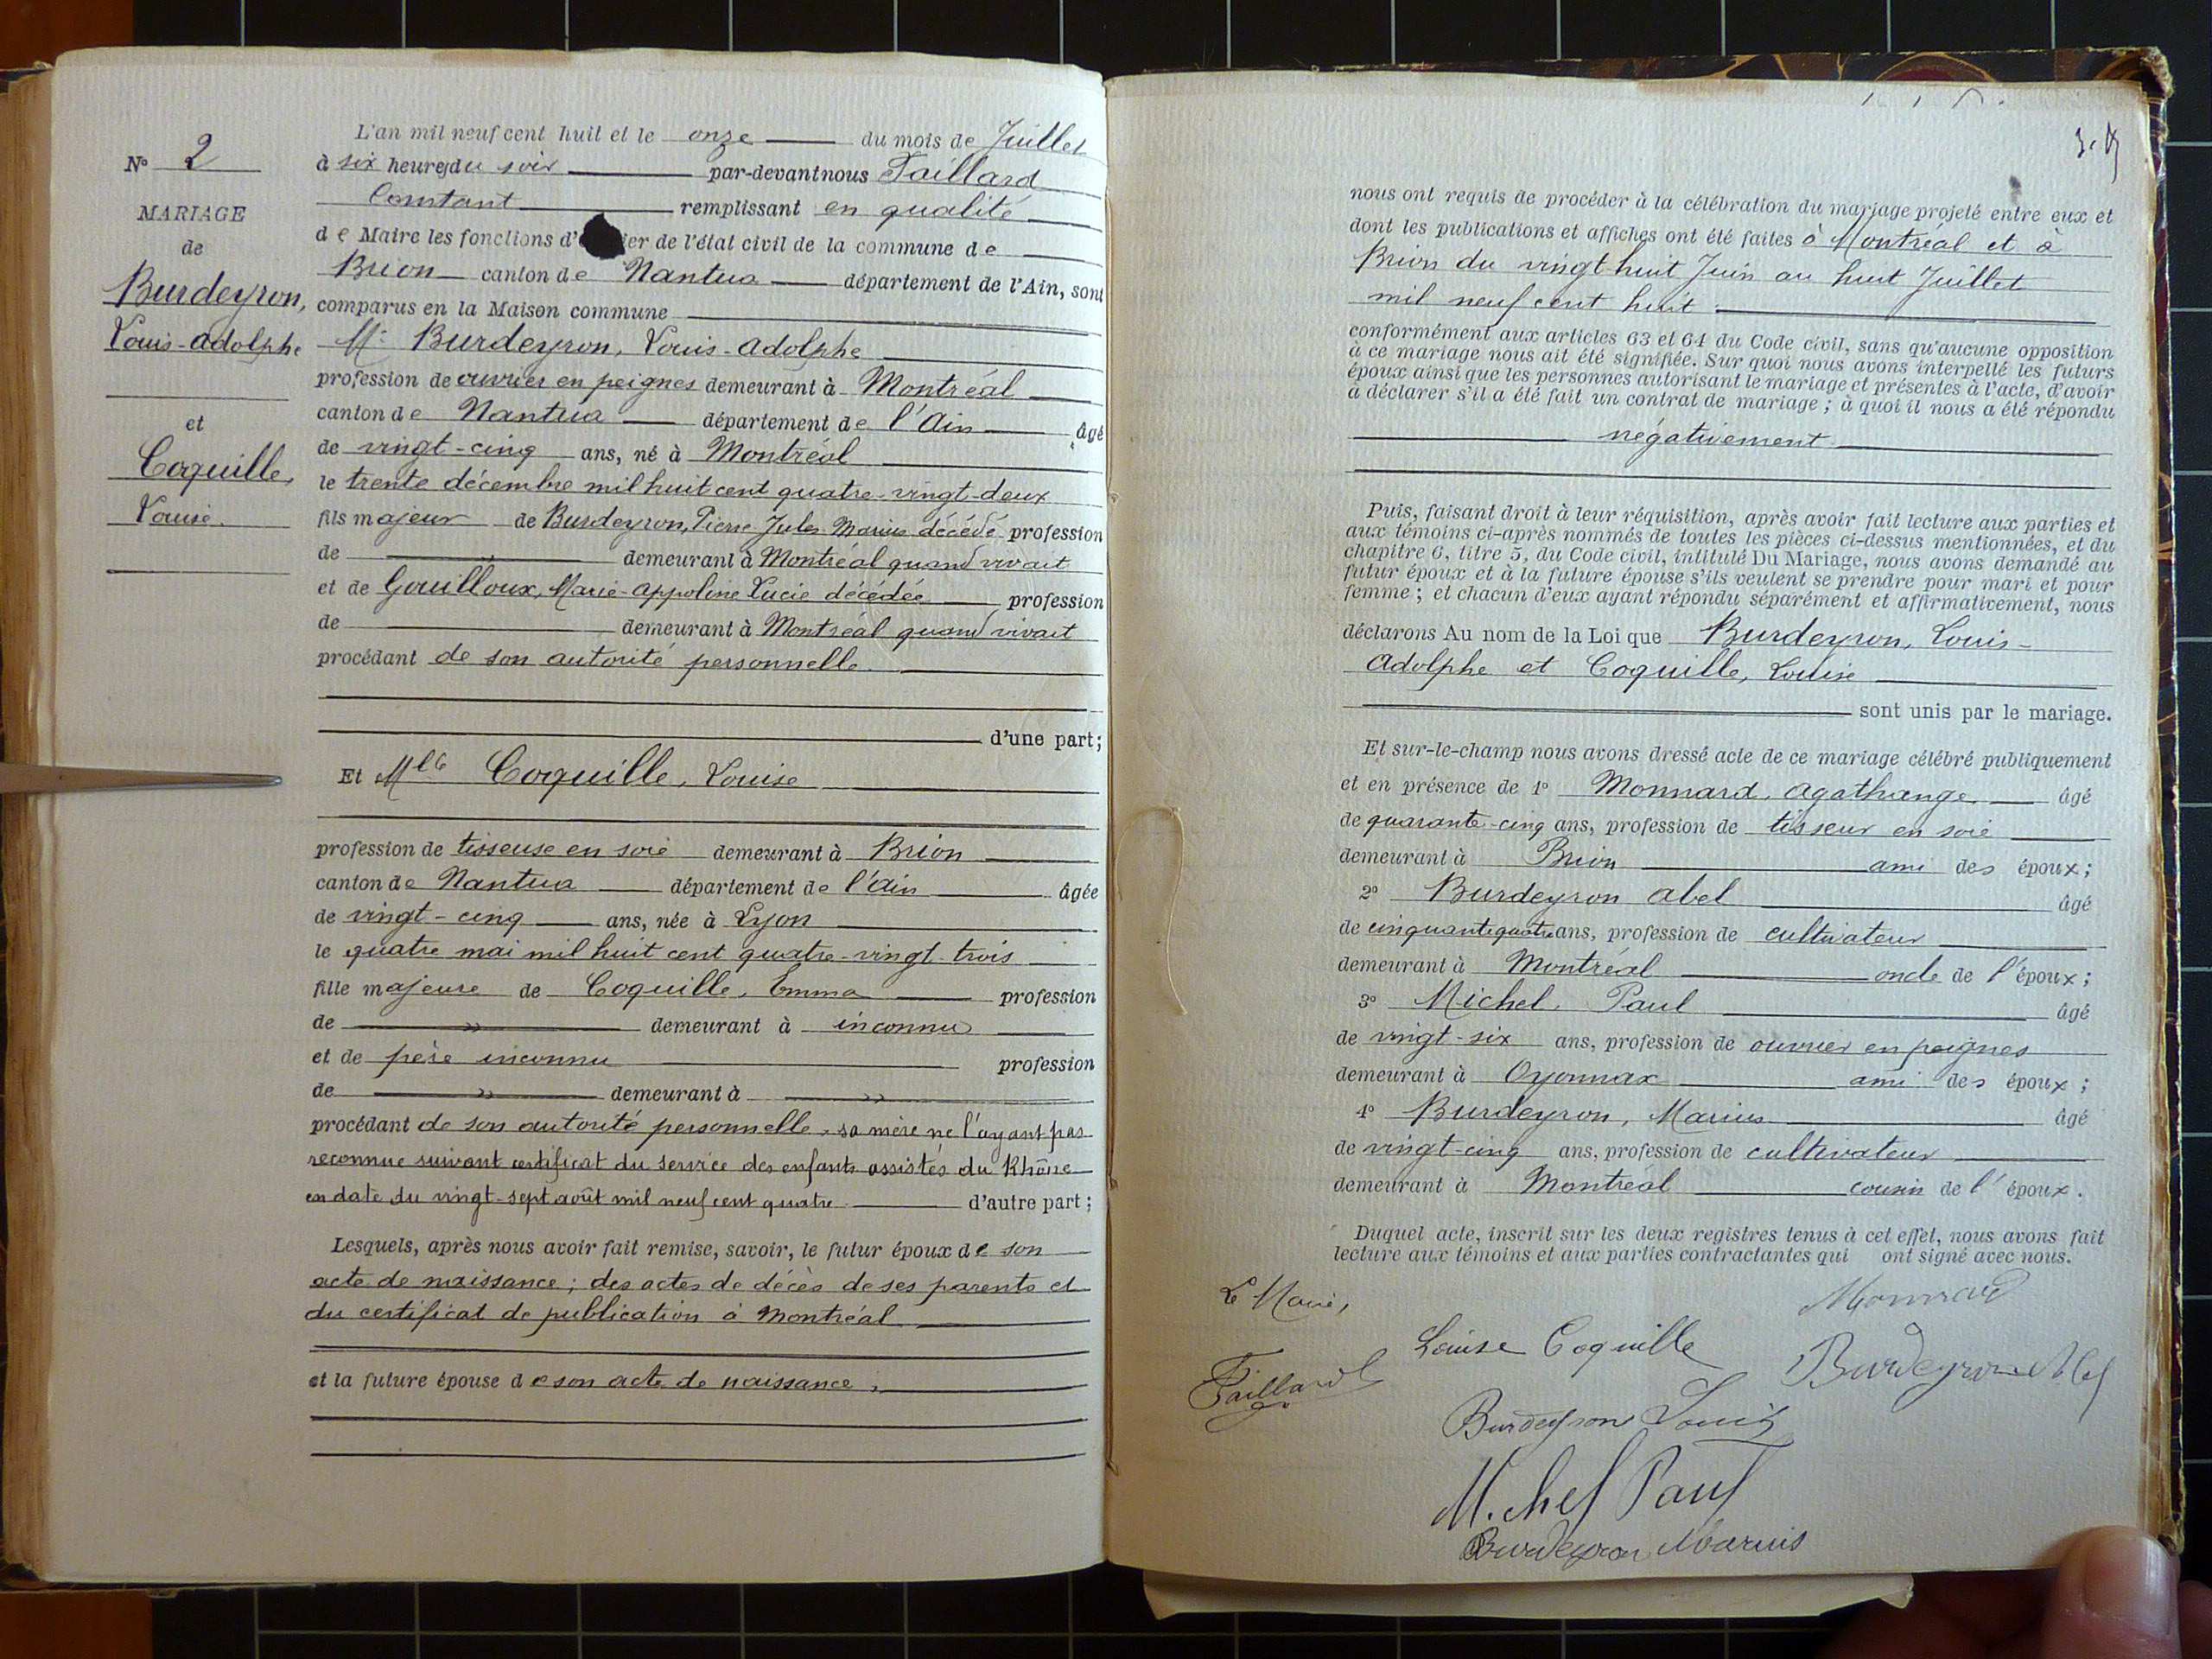 L'an mil neuf cent huit et le onze du mois de Juillet
N° 2
à six heures du soir par-devant nous Taillard
Constant remplissant en qualité
MARIAGE
de
de Maire les fonctions d' ier de l'état civil de la commune de
Brion canton de Nantua département de l'Ain, sont
Burdeyron,
comparus en la Maison commune
Louis-Adolphe
Mr Burdeyron, Louis-Adolphe
profession de ouvrier en peignes demeurant à Montréal
canton de Nantua département de l'Ain âgé
et
de vingt-cinq ans, né à Montréal
Coquille,
le trente décembre mil huit cent quatre-vingt-deux
Louise.
fils majeur de Burdeyron, Pierre Jules Marius décédé profession
de " demeurant à Montréal quand vivait
et de Gouilloux, Marie-Appoline Lucie décédée profession
de demeurant à Montréal quand vivait
procédant de son autorité personnelle.
d'une part;
Et Mlle Coquille, Louise
profession de tisseuse en soie demeurant à Brion
canton de Nantua département de l'Ain âgée
de vingt-cinq ans, née à Lyon
le quatre mai mil huit cent quatre-vingt-trois
fille majeure de Coquille, Emma profession
de " demeurant à inconnu
et de père inconnu profession
de " demeurant à "
procédant de son autorité personnelle, sa mère ne l'ayant pas
reconnue suivant certificat du service des enfants assistés du Rhône
en date du vingt-sept août mil neuf cent quatre d'autre part;
Lesquels, après nous avoir fait remise, savoir, le futur époux de son
acte de naissance; des actes de décès de ses parents et
du certificat de publication à Montréal
et la future épouse de son acte de naissance,
nous ont requis de procéder à la célébration du mariage projeté entre eux et
dont les publications et affiches ont été faites à Montréal et à
Brion du vingt huit Juin au huit Juillet
mil neuf cent huit.
conformément aux articles 63 et 64 du Code civil, sans qu'aucune opposition
à ce mariage nous ait été signifiée. Sur quoi nous avons interpellé les futurs
époux ainsi que les personnes autorisant le mariage et présentes à l'acte, d'avoir
à déclarer s'il a été fait un contrat de mariage; à quoi il nous a été répondu
négativement.
Puis, faisant droit à leur réquisition, après avoir fait lecture aux parties et
aux témoins ci-après nommés de toutes les pièces ci-dessus mentionnées, et du
chapitre 6, titre 5, du Code civil, intitulé Du Mariage, nous avons demandé au
futur époux et à la future épouse s'ils veulent se prendre pour mari et pour
femme; et chacun d'eux ayant répondu séparément et affirmativement, nous
déclarons Au nom de la Loi que Burdeyron, Louis-
Adolphe et Coquille, Louise
sont unis par le mariage.
Et sur-le-champ nous avons dressé acte de ce mariage célébré publiquement
et en présence de 1° Monnard, Agathange âgé
de quarante-cinq ans, profession de tisseur en soie
demeurant à Brion ami des époux;
2° Burdeyron Abel âgé
de cinquante quatre ans, profession de cultivateur
demeurant à Montréal oncle de l'époux;
3° Michel, Paul âgé
de vingt-six ans, profession de ouvrier en peignes
demeurant à Oyonnax ami des époux;
4° Burdeyron, Marius âgé
de vingt-cinq ans, profession de cultivateur
demeurant à Montréal cousin de l'époux.
Duquel acte, inscrit sur les deux registres tenus à cet effet, nous avons fait
lecture aux témoins et aux parties contractantes qui ont signé avec nous.
Le Maire,
Monnard
Louise Coquille
Taillard
Burdeyron Abel
Burdeyron Louis
Michel Paul
Burdeyron Marius